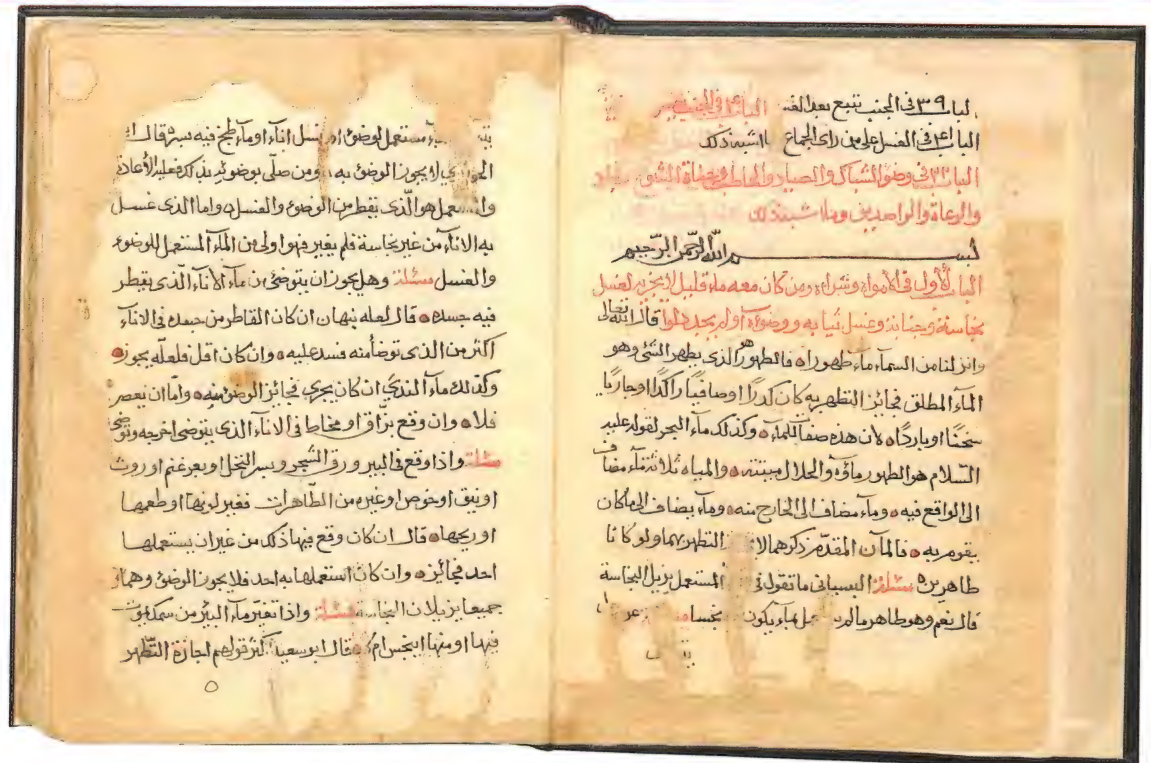 الباب ٣٩ في الجنب يتبع بعد الغسل الباب ٤٠ في الجنب
الباب ٤١ في الغسل على من رأى الجماع وما أشبه ذلك
الباب ٤٢ في وضوء الشباك والصياد والحاطب
والرعاة والراصدين وما أشبه ذلك
بسم الله الرحمن الرحيم
الباب الأول في الأمواه وشراءه ومن كان معه ماء قليل لا يجزيه لغسل
نجاسة وجنابة وغسل ثيابه ووضوءه أو لم يجد دلوا قال الله تعالى
وانزلنا من السماء ماء طهورا ه فالطهور هو الذي يطهر الشئ وهو
الماء المطلق فجائز التطهر به كان كدرا أو صافيا راكدا أو جاريا
سخنا أو باردا ه لأن هذه صفات للماء ه وكذلك ماء البحر لقوله عليه
السلام هو الطهور ماؤه والحلال ميتته ه والمياه ثلاثة ماء مضاف
إلى الواقع فيه ه وماء مضاف إلى الخارج منه ه وماء يضاف إلى ما كان
يقوم به ه فالمآن المقدم ذكرهما لا التطهر بهما ولو كانا
طاهرين ه مسئلة البسياني ما تقول في المستعمل يزيل النجاسة
قال نعم وهو طاهر ما لم بماء يكون نجسا
مستعمل لوضوء أو غسل اناء أو ماء طبخ فيه بسر قال
لا يجوز الوضوء به ومن صلى بوضوء بذلك فعليه الأعادة
هو الذي يقطر من الوضوء والغسل ه واما الذي غسل
به الاناء من غير نجاسة فلم يغير فهو اولى من الماء المستعمل للوضوء
والغسل مسئلة وهل يجوز ان يتوضئ من ماء الاناء الذي يقطر
فيه جسده ه قال لعله نبهان ان كان القاطر من جسده في الاناء
أكثر من الذي توضأ منه فسد عليه ه وان كان اقل فلعله يجوز ه
وكذلك ماء الندي ان كان يجري فجائز الوضوء منه ه واما ان يعصر
فلا ه وان وقع بزاق او مخاط في الاناء الذي يتوضئ اخرجه وتوضئ
مسئلة واذا وقع في البير ورق الشجر وبسر النخل او بعر غنم او روث
او نبق او خوص او غيره من الطاهرات فغير لونها او طعمها
او ريحها ه قال ان كان وقع فيها ذلك من غير ان يستعملها
احد فجائز ه وان كان استعملها به احد فلا يجوز الوضوء وهما
جميعا يزيلان النجاسة مسئلة واذا تغير ماء البير من سمكة يموت
فيها او منها اينجس ام لا ه قال ابو سعيد أكثر قولهم اجازة التطهر